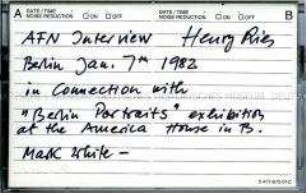 A DATE / TIME NOISE REDUCTION ON OFF DATE / TIME NOISE REDUCTION ON OFF B
AFN Interview Henry Ries
Berlin Jan. 7th 1982
in connection with
"Berlin Portraits" exhibition
at the America House in B.
Mark White –